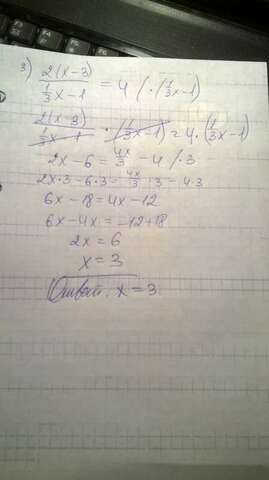 3) 2(x-3) / (1/3x-1) = 4 / ·(1/3x-1)
2(x-3) / (1/3x-1) · (1/3x-1) = 4·(1/3x-1)
2x-6 = 4x/3 - 4 /·3
2x·3-6·3 = 4x/3·3-4·3
6x-18 = 4x-12
6x-4x = -12+18
2x = 6
x = 3
Ответ: x = 3